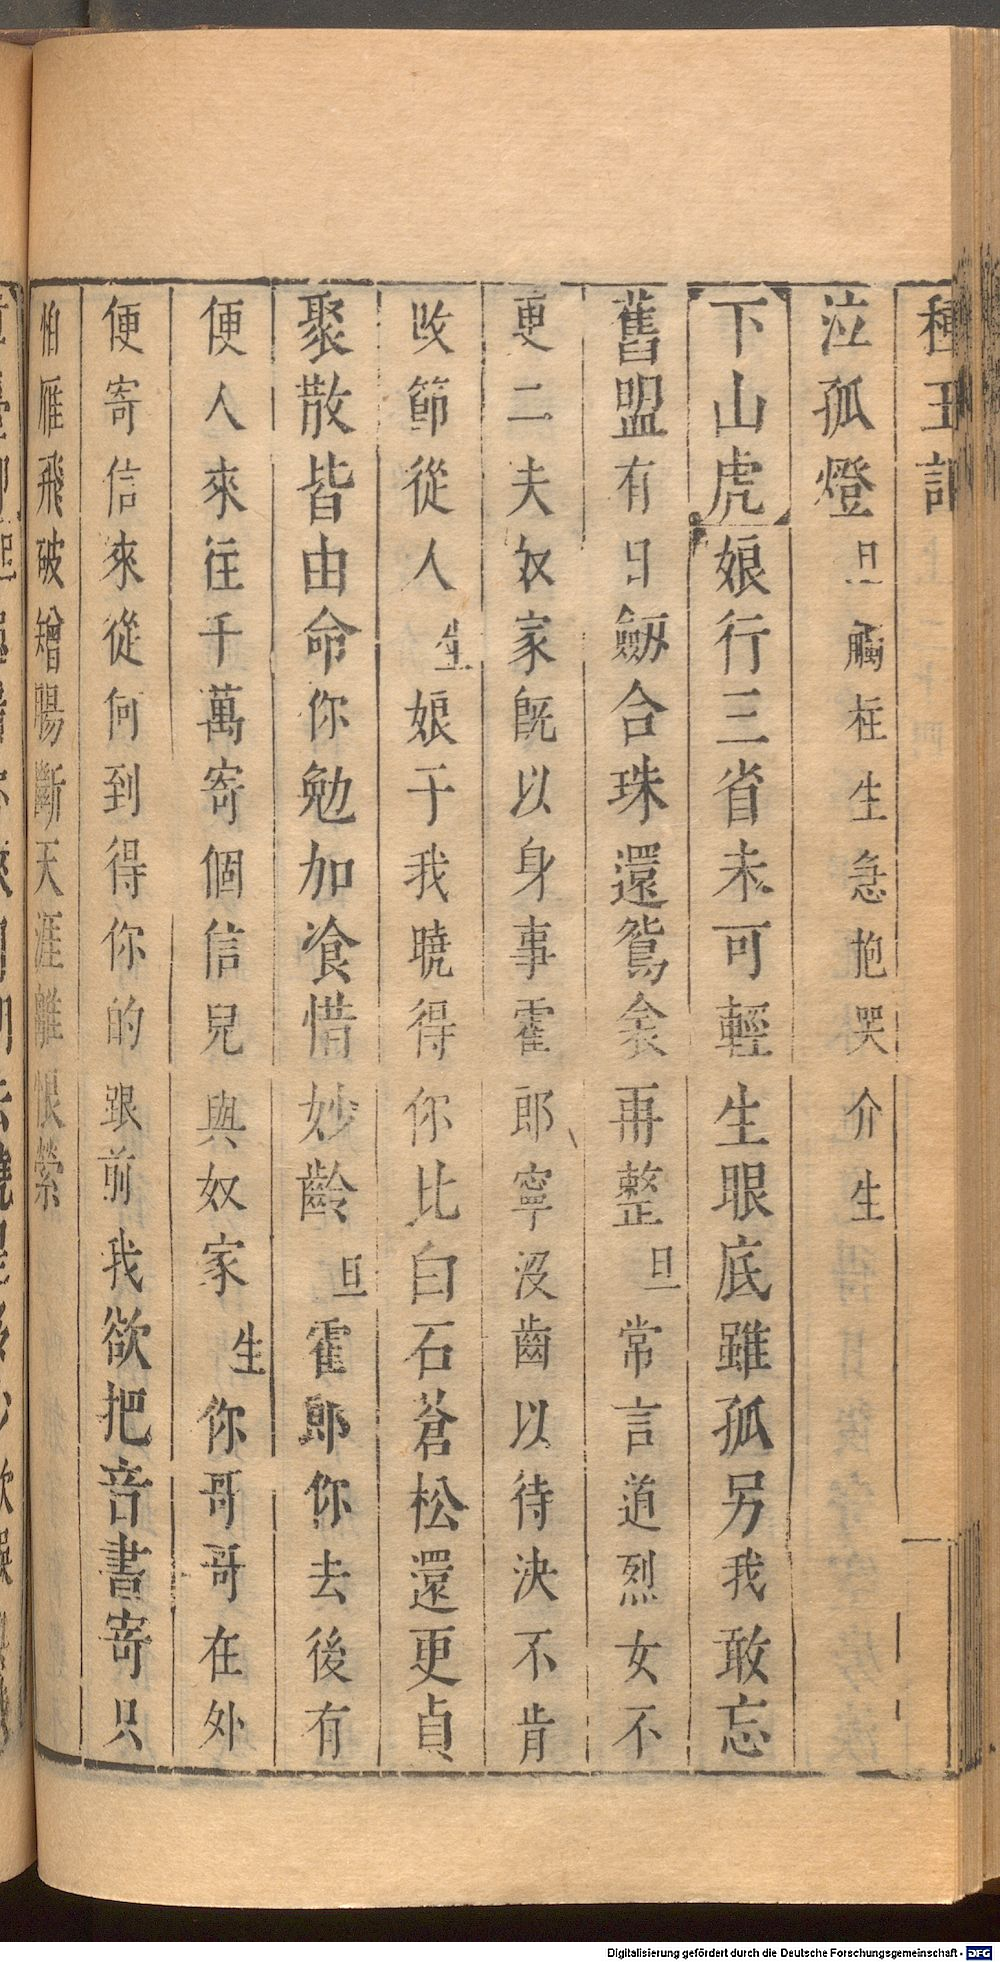 種玉記
泣孤燈旦觸柱生急抱哭介生
下山虎娘行三省未可輕生眼底雖孤另我敢忘
舊盟有日劔合珠還鴛衾再整旦常言道烈女不
更二夫奴家既以身事霍郎寧沒齒以待決不肯
改節從人生娘子我曉得你比白石蒼松還更貞
聚散皆由命你勉加飡惜妙齡旦霍郎你去後有
便人來往千萬寄個信兒與奴家生你哥哥在外
便寄信來從何到得你的跟前我欲把音書寄只
怕雁飛破矰腸斷天涯離恨縈
Digitalisierung gefördert durch die Deutsche Forschungsgemeinschaft - DFG